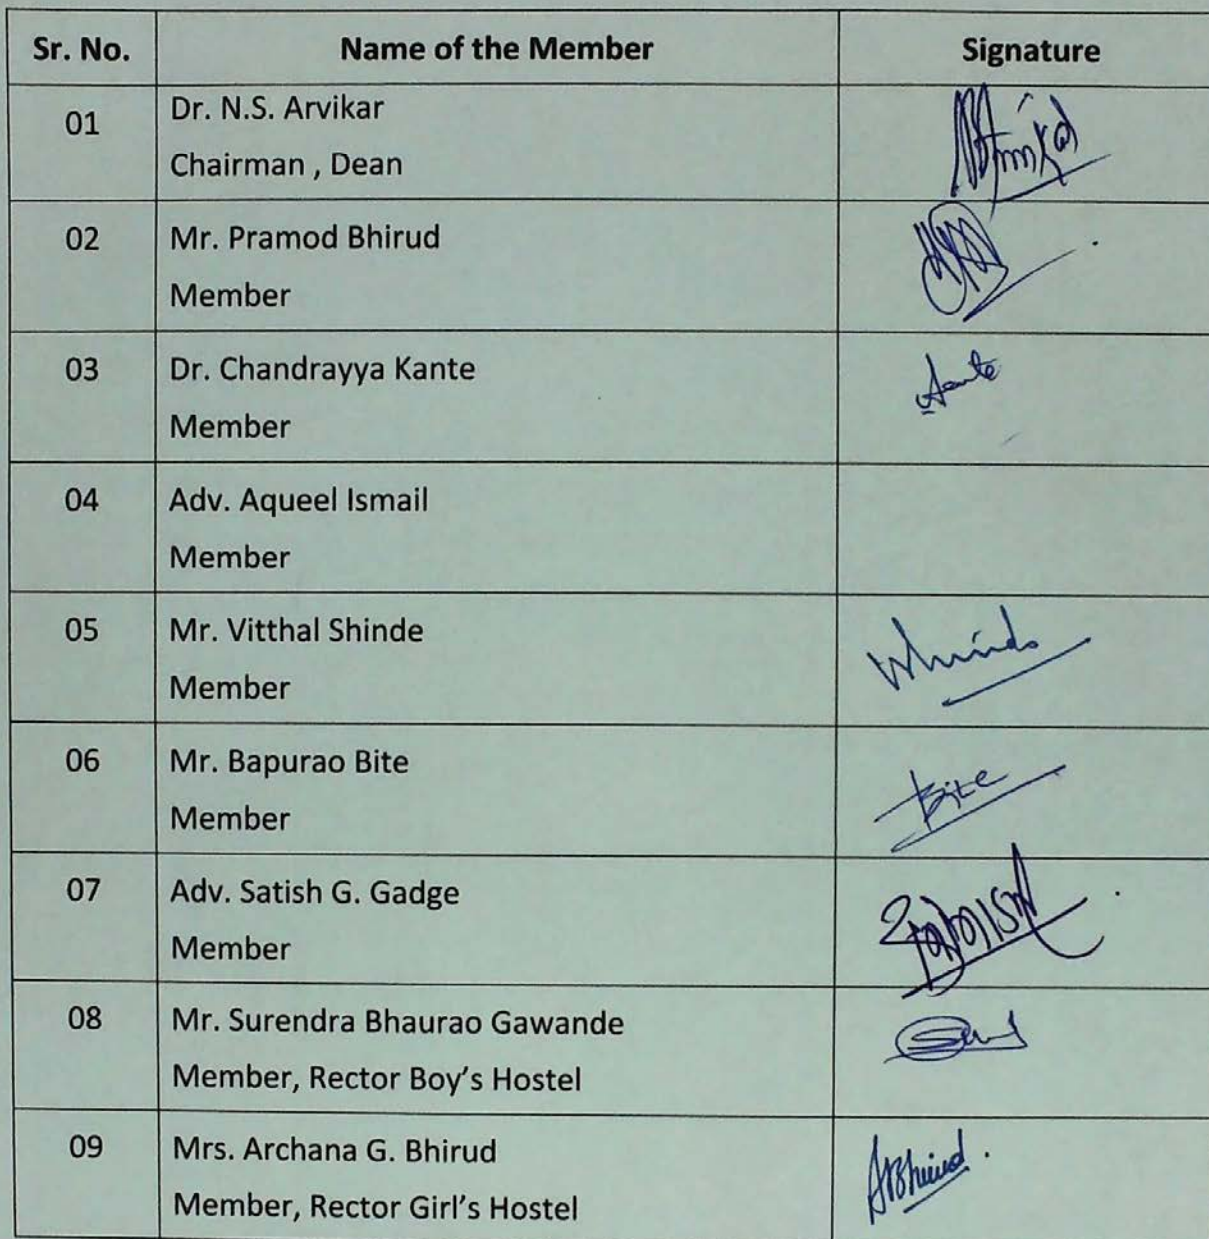 Sr. No. Name of the Member Signature
01 Dr. N.S. Arvikar
Chairman , Dean
02 Mr. Pramod Bhirud
Member
03 Dr. Chandrayya Kante
Member
Kante
04 Adv. Aqueel Ismail
Member
05 Mr. Vitthal Shinde
Member
06 Mr. Bapurao Bite
Member
Bite
07 Adv. Satish G. Gadge
Member
08 Mr. Surendra Bhaurao Gawande
Member, Rector Boy's Hostel
09 Mrs. Archana G. Bhirud
Member, Rector Girl's Hostel
ABhirud.